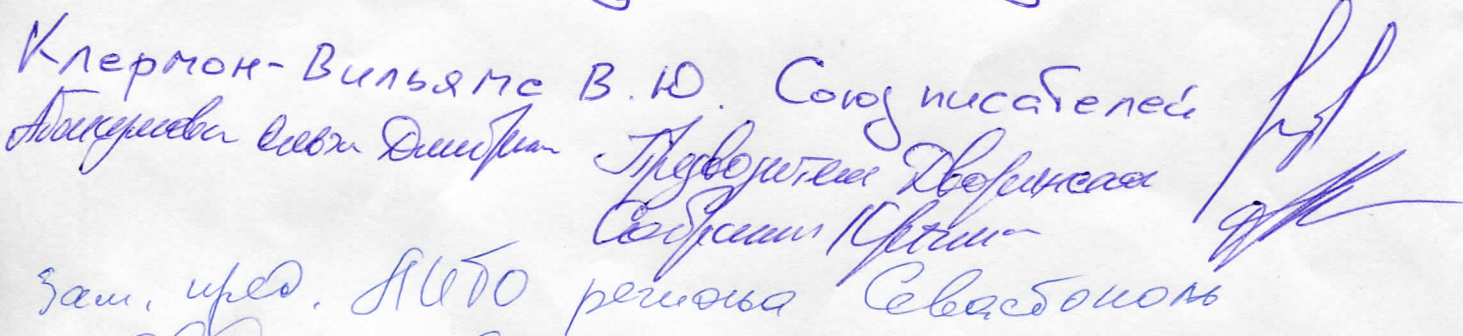 Клермон-Вильямс В.Ю. Союз писателей
Ольга Дмитриев Предводитель Дворянского
Собрания Крыма
Зам. пред. региона Севастополь